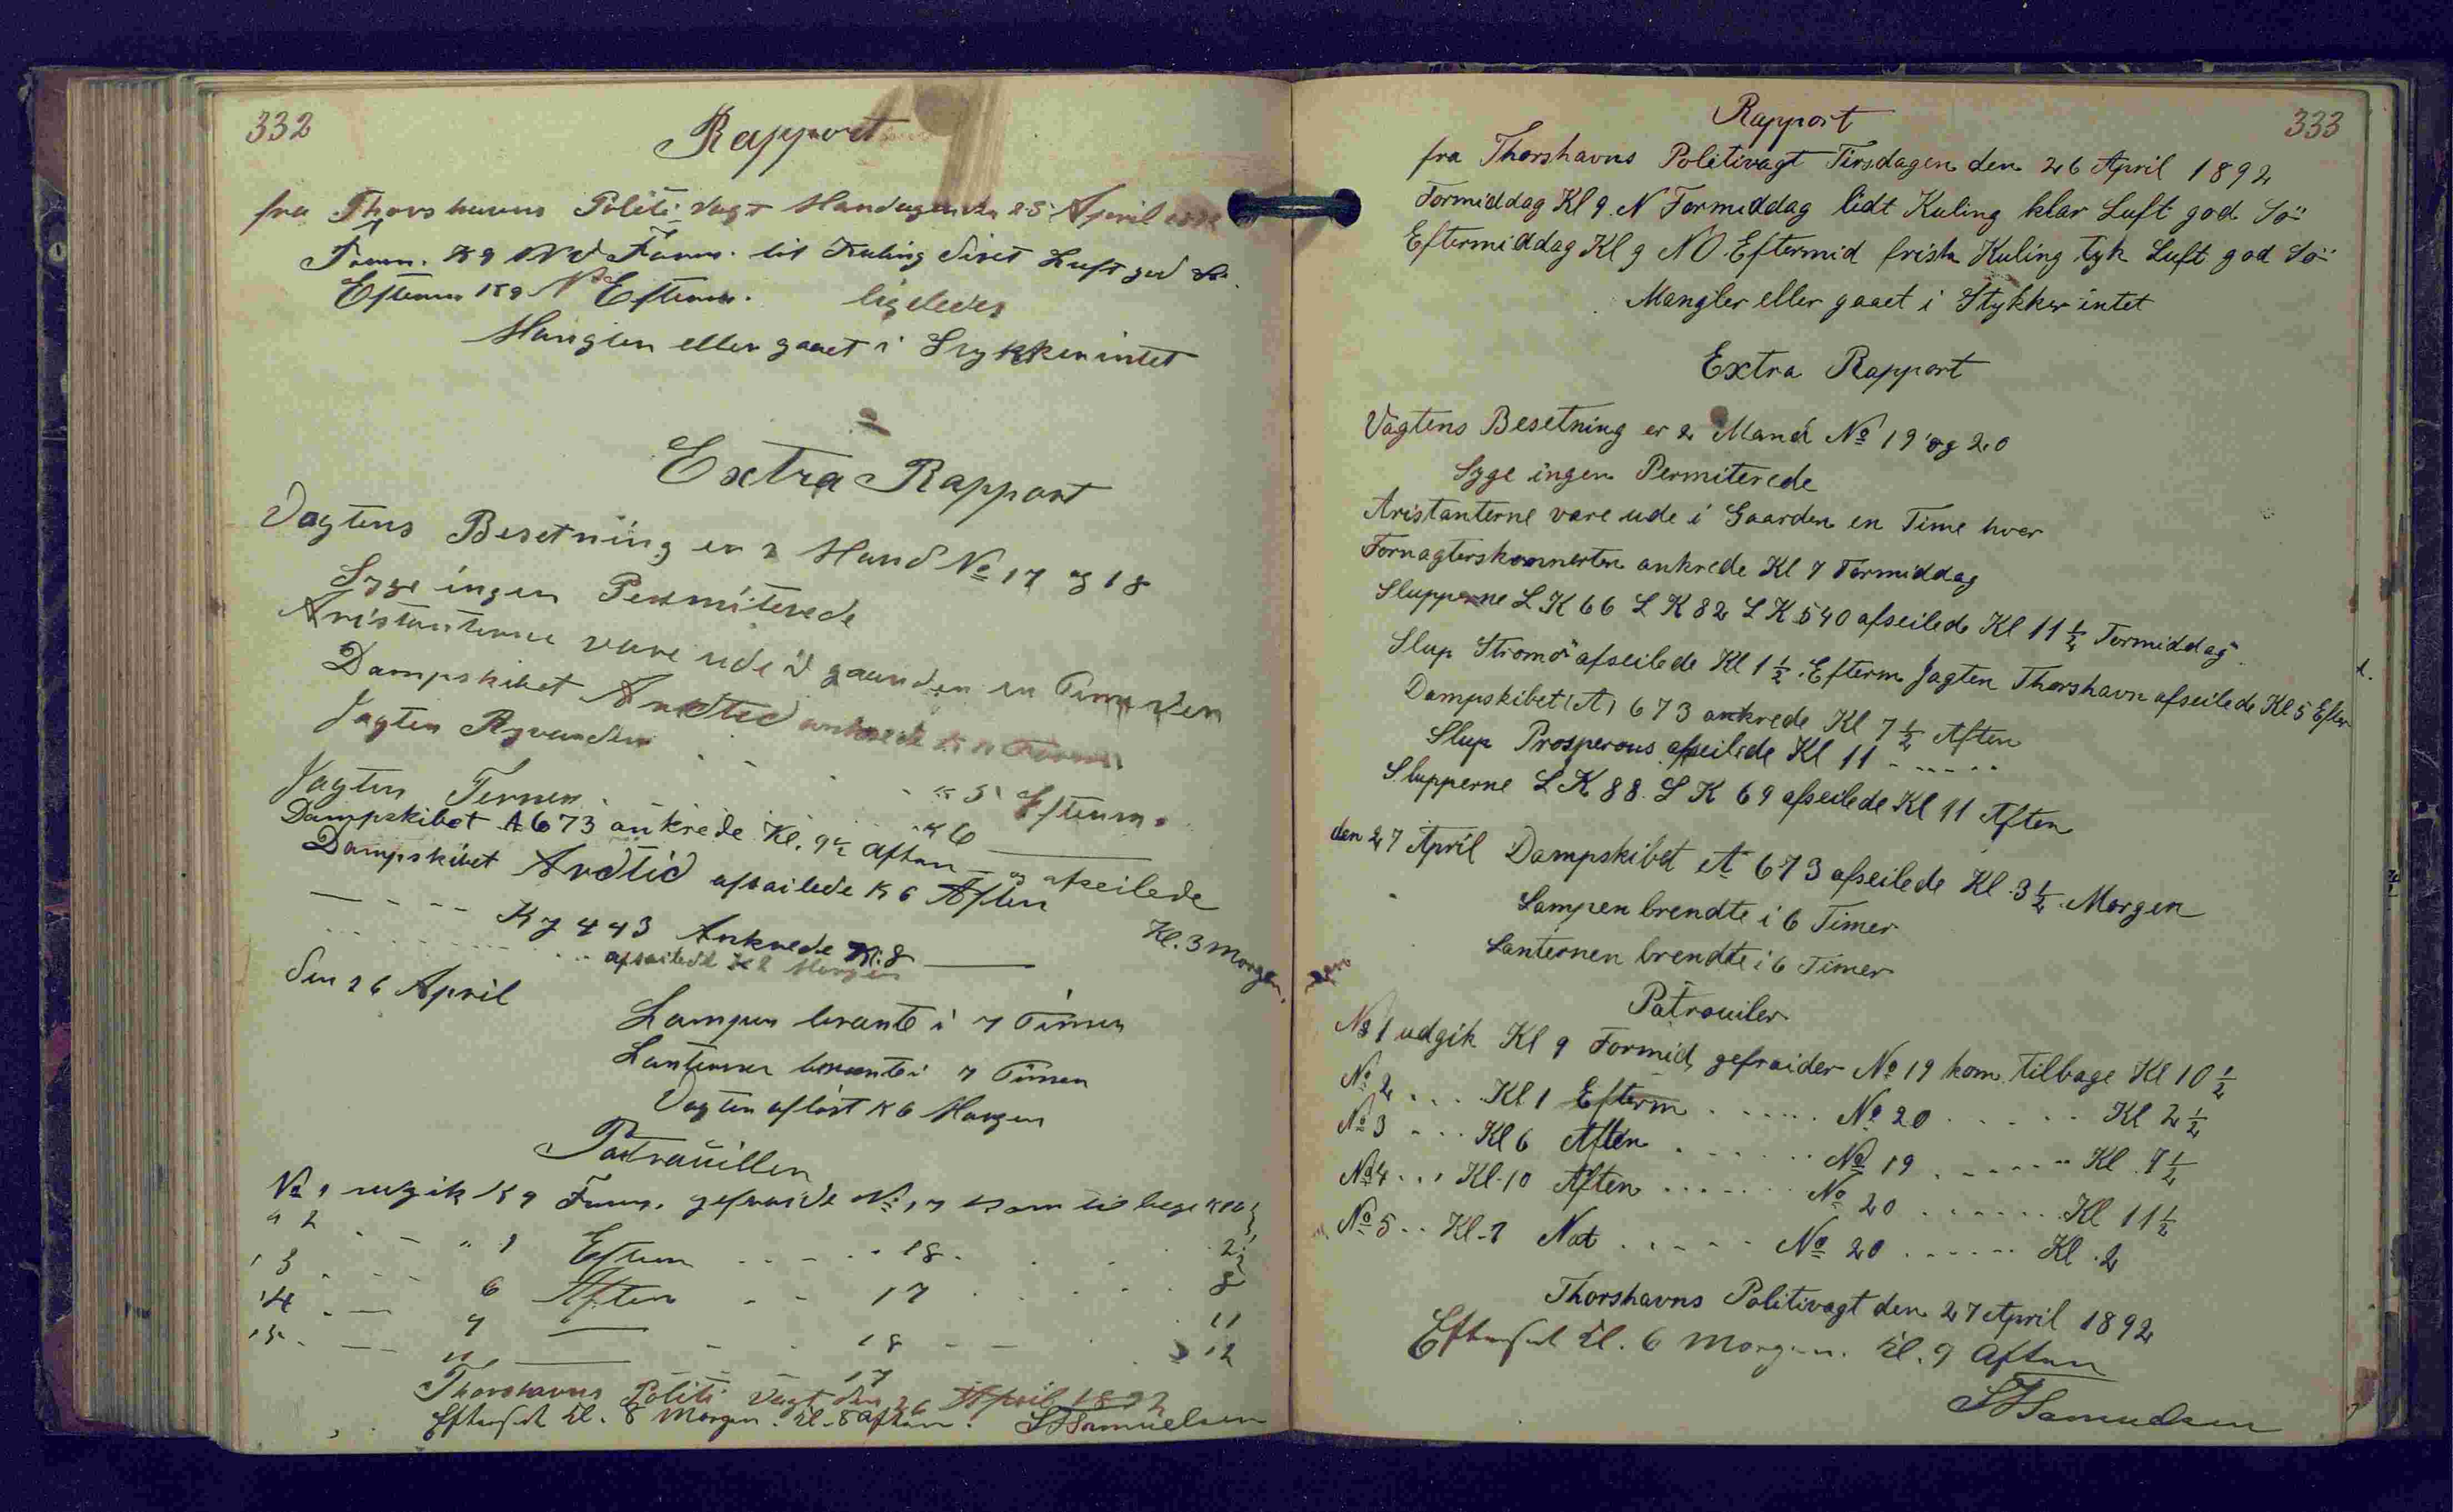 332
Rapport
fra Thorshavns Politi Vagt Mandagen den 25 April 1892
Form. K 9 NV Form. lit Kuling Luft god Sö
Efterm K 9 N Efterm. ligeledes
Mangler eller gaaet i Stykker intet
Extra Rapport
Vagtens Besetning er 2 Mand No 17 og 18
Syge ingen Permiterede
Aristanterne vare ude i gaarden en Time
Dampskibet Arctic ankrede K 11 Form.
Jagten
" 5 Efterm.
Jagten Ternen " 6
Dampskibet A 673 ankrede Kl. 9½ Aften og afseilede
Kl. 3 Morgen
Dampskibet Arctic afsailede K 6 Aften
Ky 443 Ankrede K. 8
afsailede K 2 Morgen
den 26 April
Lampen brante i 7 Timer
Lanternen brante i 7 Timer
Vagten aflöst K 6 Morgen
Patrouiller
No 1 udgik K 9 Form. gefraide No 17 kom tilbage K 10½
" 2 " 1 Efterm 18 2½
" 3 6 Aften 17 8
" 4 9 18 11
" 5 11 17 12
Thorshavns Politi Vagt den 26 April 1892
Efterset Kl. 8 Morgen. Kl. 8 Aften. SSamuelsen
333
Rapport
fra Thorshavns Politivagt Tirsdagen den 26 April 1892
Formiddag Kl 9. N Formiddag lidt Kuling klar Luft god Sö
Eftermiddag Kl 9 NO. Eftermid frisk Kuling tyk Luft god Sö
Mangler eller gaaet i Stykker intet
Extra Rapport
Vagtens Besetning er 2 Mand No 19 og 20
Syge ingen Permiterede
Aristanterne vare ude i Gaarden en Time hver
ankrede Kl 7 Formiddag
Slupperne L K 66 L K 82 L K 540 afseilede Kl 11½ Formiddag
Slup Strömö afseilede Kl 1½. Efterm Jagten Thorshavn afseilede Kl 5 Efter
Dampskibet (A) 673 ankrede Kl 7½ Aften
Slup Prosperous afseilede Kl 11 - - - - -
Slupperne L K 88. L K 69 afseilede Kl 11 Aften
den 27 April Dampskibet A 673 afseilede Kl. 3½. Morgen
Lampen brendte i 6 Timer
Lanternen brendte i 6 Timer
Patrouiler
No 1 udgik Kl 9 Formid, gefraider No 19 kom tilbage Kl 10½
No 2 . . . Kl 1 Efterm . . . . . No 20 . . . . . Kl 2½
No 3 . . . Kl 6 Aften . . . . . No 19 . . . . . Kl. 7½
No 4 . . . Kl. 10 Aften . . . . . No 20 . . . . . Kl 11½
No 5 . . Kl. 1 Nat . . . . . No 20 . . . . . Kl. 2
Thorshavns Politivagt den 27 April 1892
Efterset Kl. 6 Morgen. Kl. 9 Aften
SSamuelsen